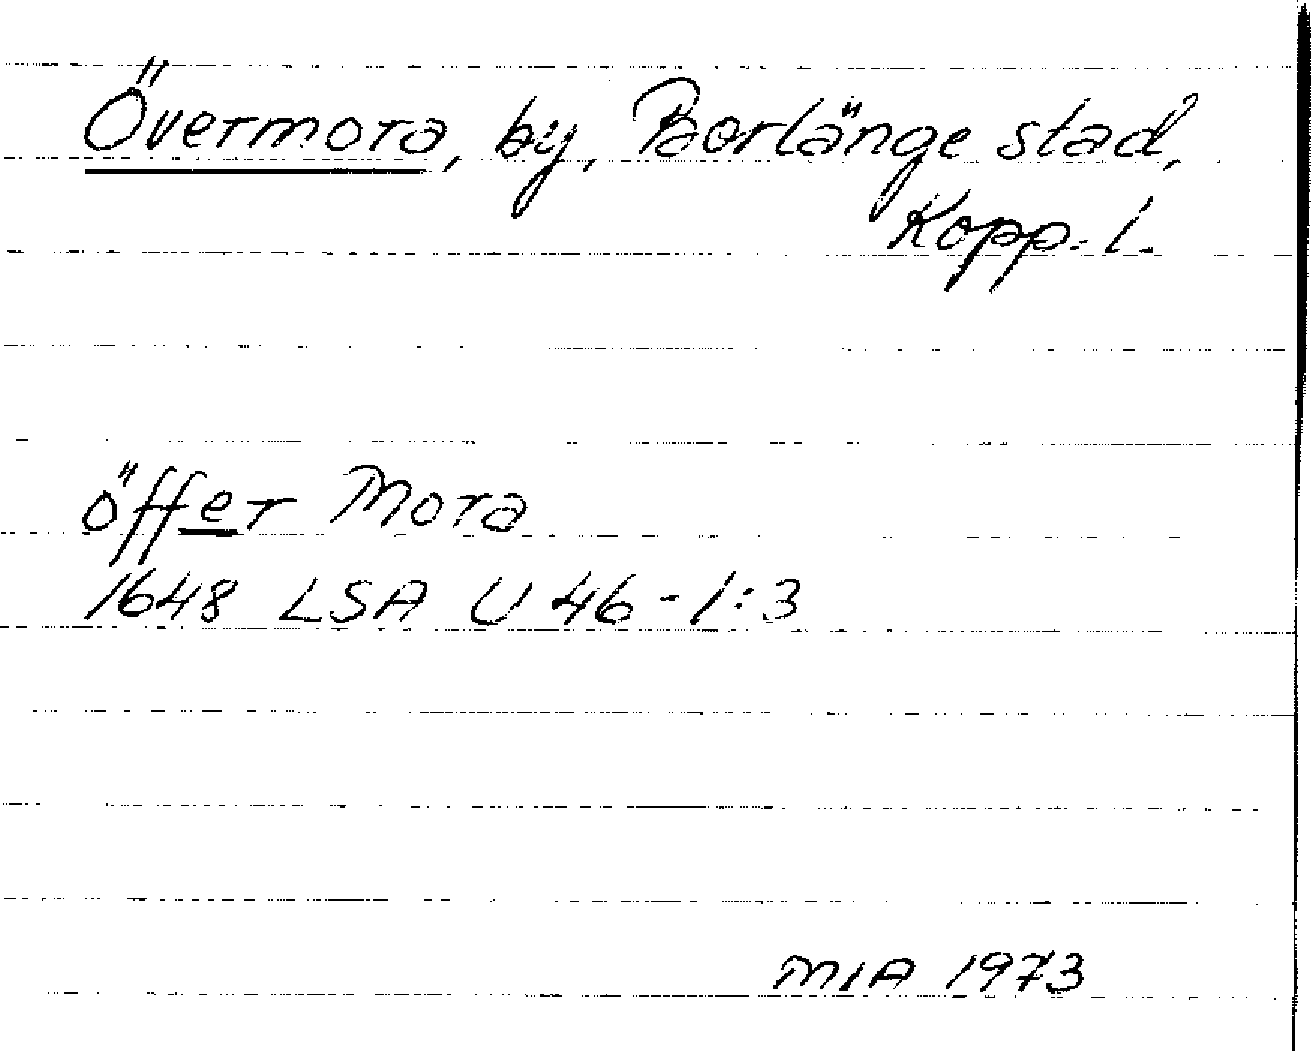 Övermora, by, Borlänge stad,
Kopp. l.
öffer Mora
1648 LSA U 46-1:3
MIA 1973